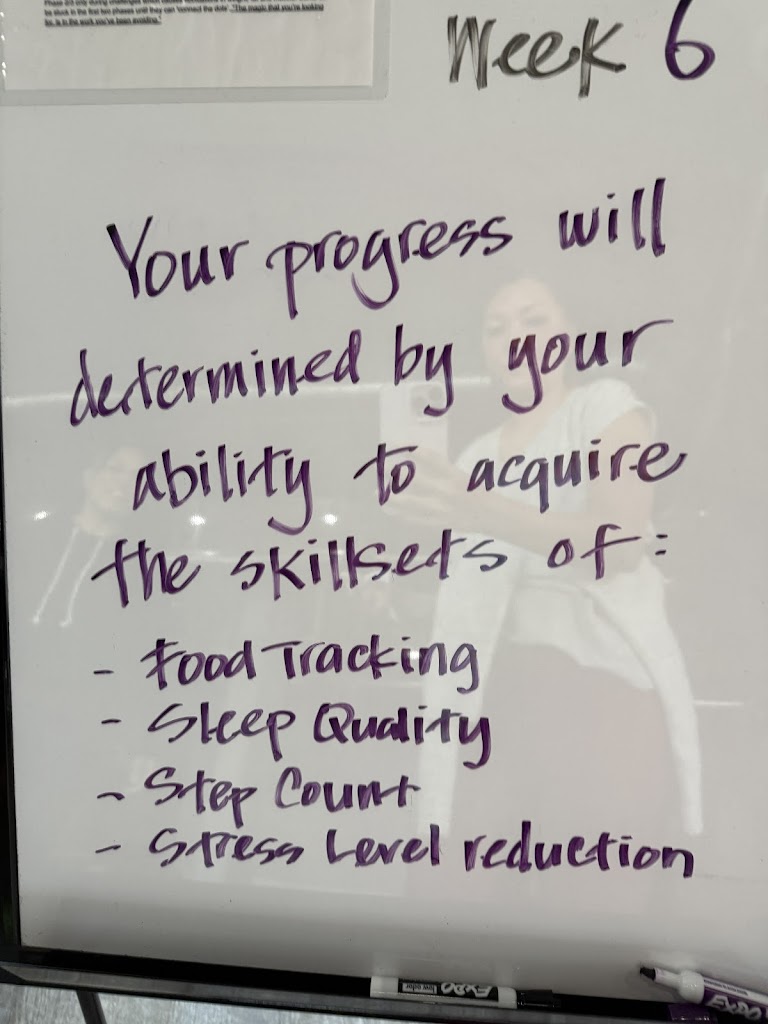 be stuck in the first two phases until they can "connect the dots". "The magic that you're looking
for, is in the work you've been avoiding."
Week 6
Your progress will
determined by your
ability to acquire
the skillsets of:
- Food Tracking
- Sleep Quality
- Step Count
- Stress Level reduction
EXPO
low odor
EXPO